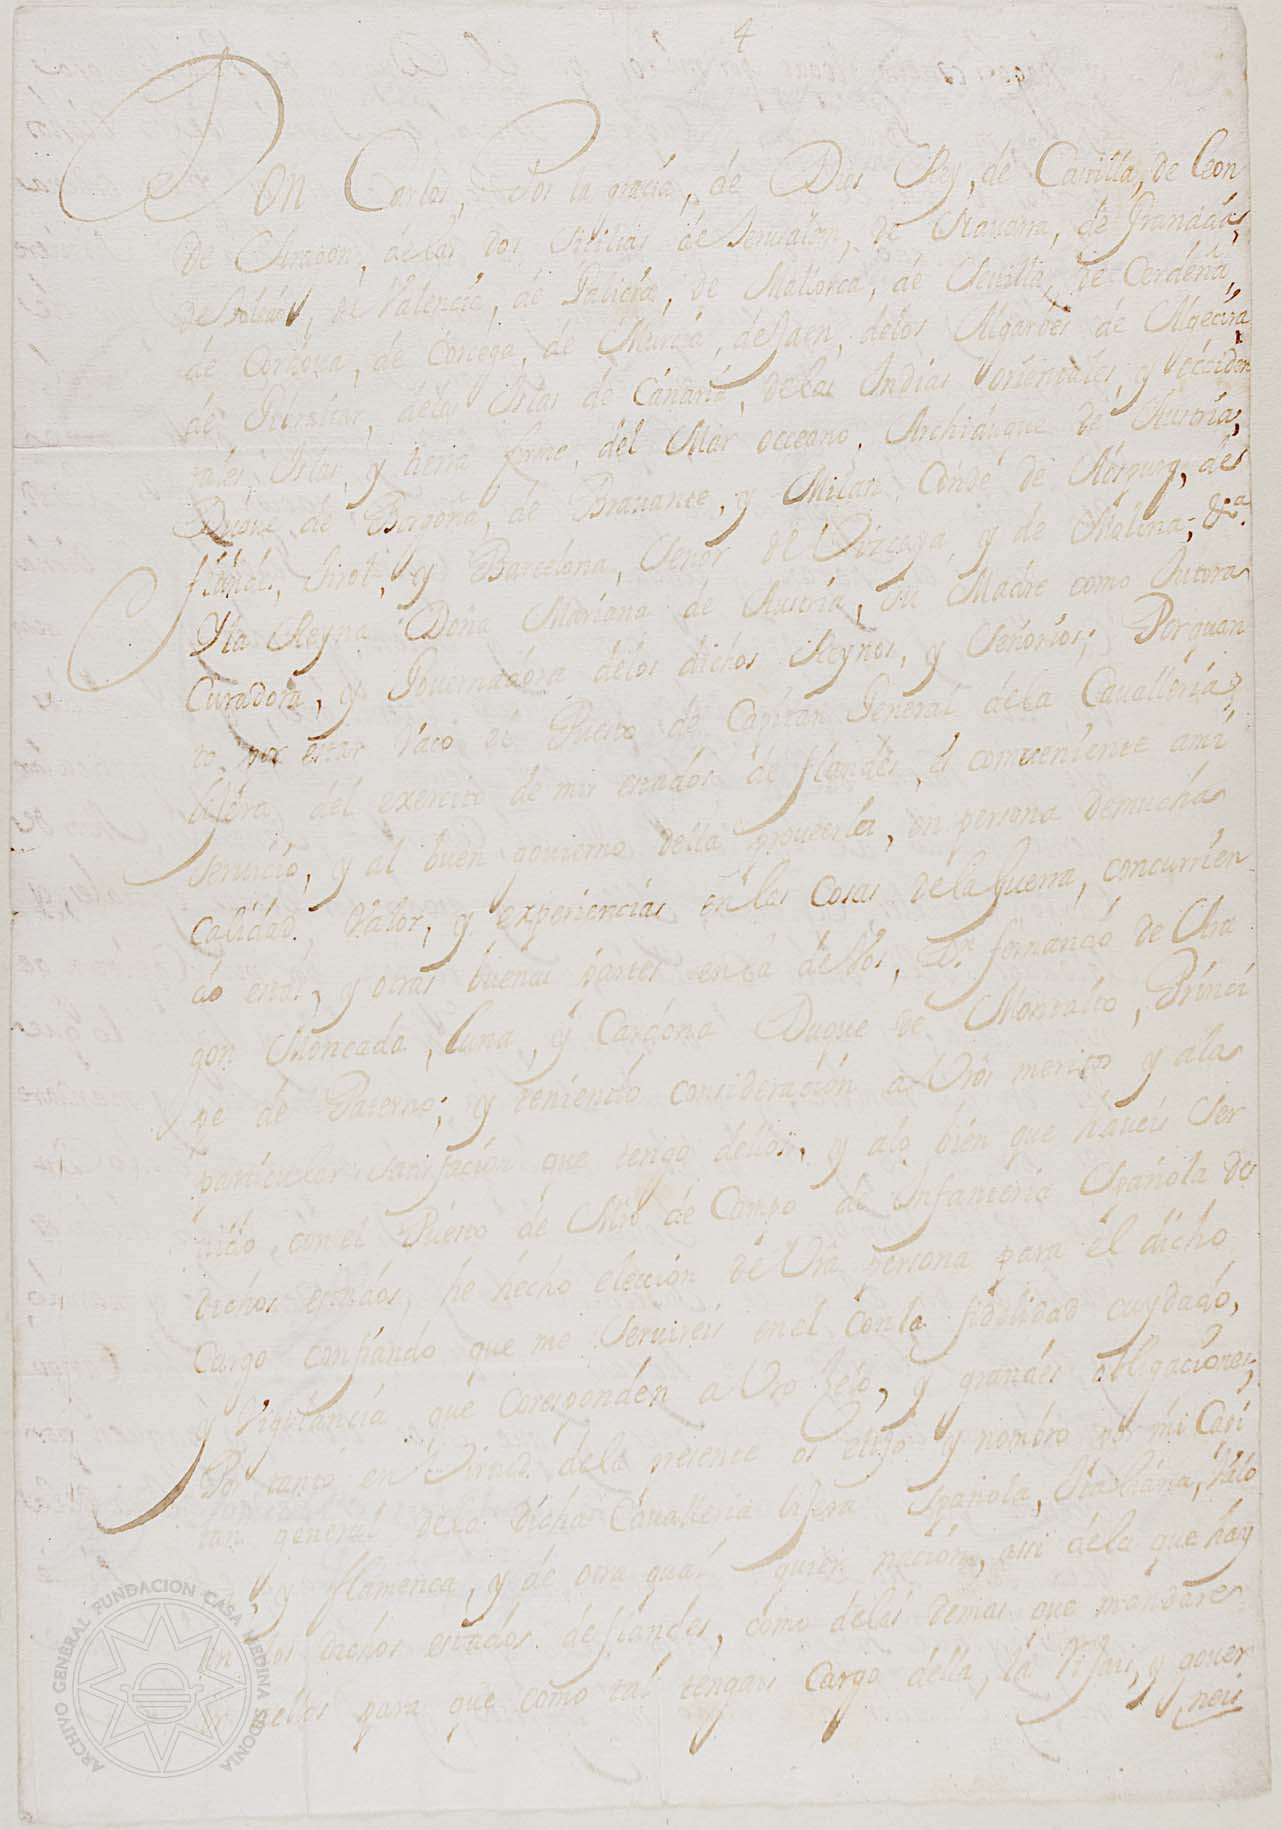 4
Don Carlos, Por la gracia, de Dios Rey, de Castilla, de Leon
de Aragon, de las dos Sicilias de Jerusalen, de Navarra, de Granada,
de Toledo, de Valencia, de Galicia, de Mallorca, de Sevilla, de Cerdeña,
de Cordova, de Corcega, de Murcia, de Jaen, delos Algarbes de Algecira
de Gibraltar, delas Islas de Canaria, delas Indias orientales, y occiden
tales, Islas, y tierra firme, del Mar occeano, Archiduque de Austria,
Duque de Borgoña, de Bravante, y Milan, Conde de Abspurg, de
flandes, Tirol, y Barcelona, Señor de Vizcaya, y de Molina, &a.
Y la Reyna Doña Mariana de Austria, su Madre como Tutora
Curadora, y Governadora delos dichos Reynos, y Señorios; Por quan
to por estar Vaco el Puesto de Capitan General dela Cavalleria
lijera del exercito de mis estados de flandes, es conveniente a mi
servicio, y al buen govierno della proveerla, en persona de mucha
Calidad, Valor, y experiencias en las Cosas dela guerra, concurrien
do estas, y otras buenas partes en la de Vos, Dn. fernando de Ara
gon Moncada, Luna, y Cardona Duque de Montalto, Princi
pe de Paterno; y teniendo consideracion a Vros meritos y ala
particular satisfacion que tengo dellos, y alo bien que haveis Ser
vido, con el Puesto de Mro de Campo de Infanteria Española de
dichos estados, he hecho eleccion de Vra persona para el dicho
Cargo confiando que me Servireis en el con la fidelidad cuydado,
y Vigilancia que coresponden a Vro Zelo, y grandes obligaciones,
Por tanto en Virtud dela presente os elijo y nombro por mi Capi
tan general dela dicha Cavalleria lijera Española, Italiana, Valo
na, y flamenca, y de otra qual quier nacion, assi dela que hay
en los dichos estados de flandes, como delas demas que mandare
en ellos para que como tal tengais Cargo della, la Rijais, y gover
neis
ARCHIVO GENERAL FUNDACION CASA MEDINA SIDONIA